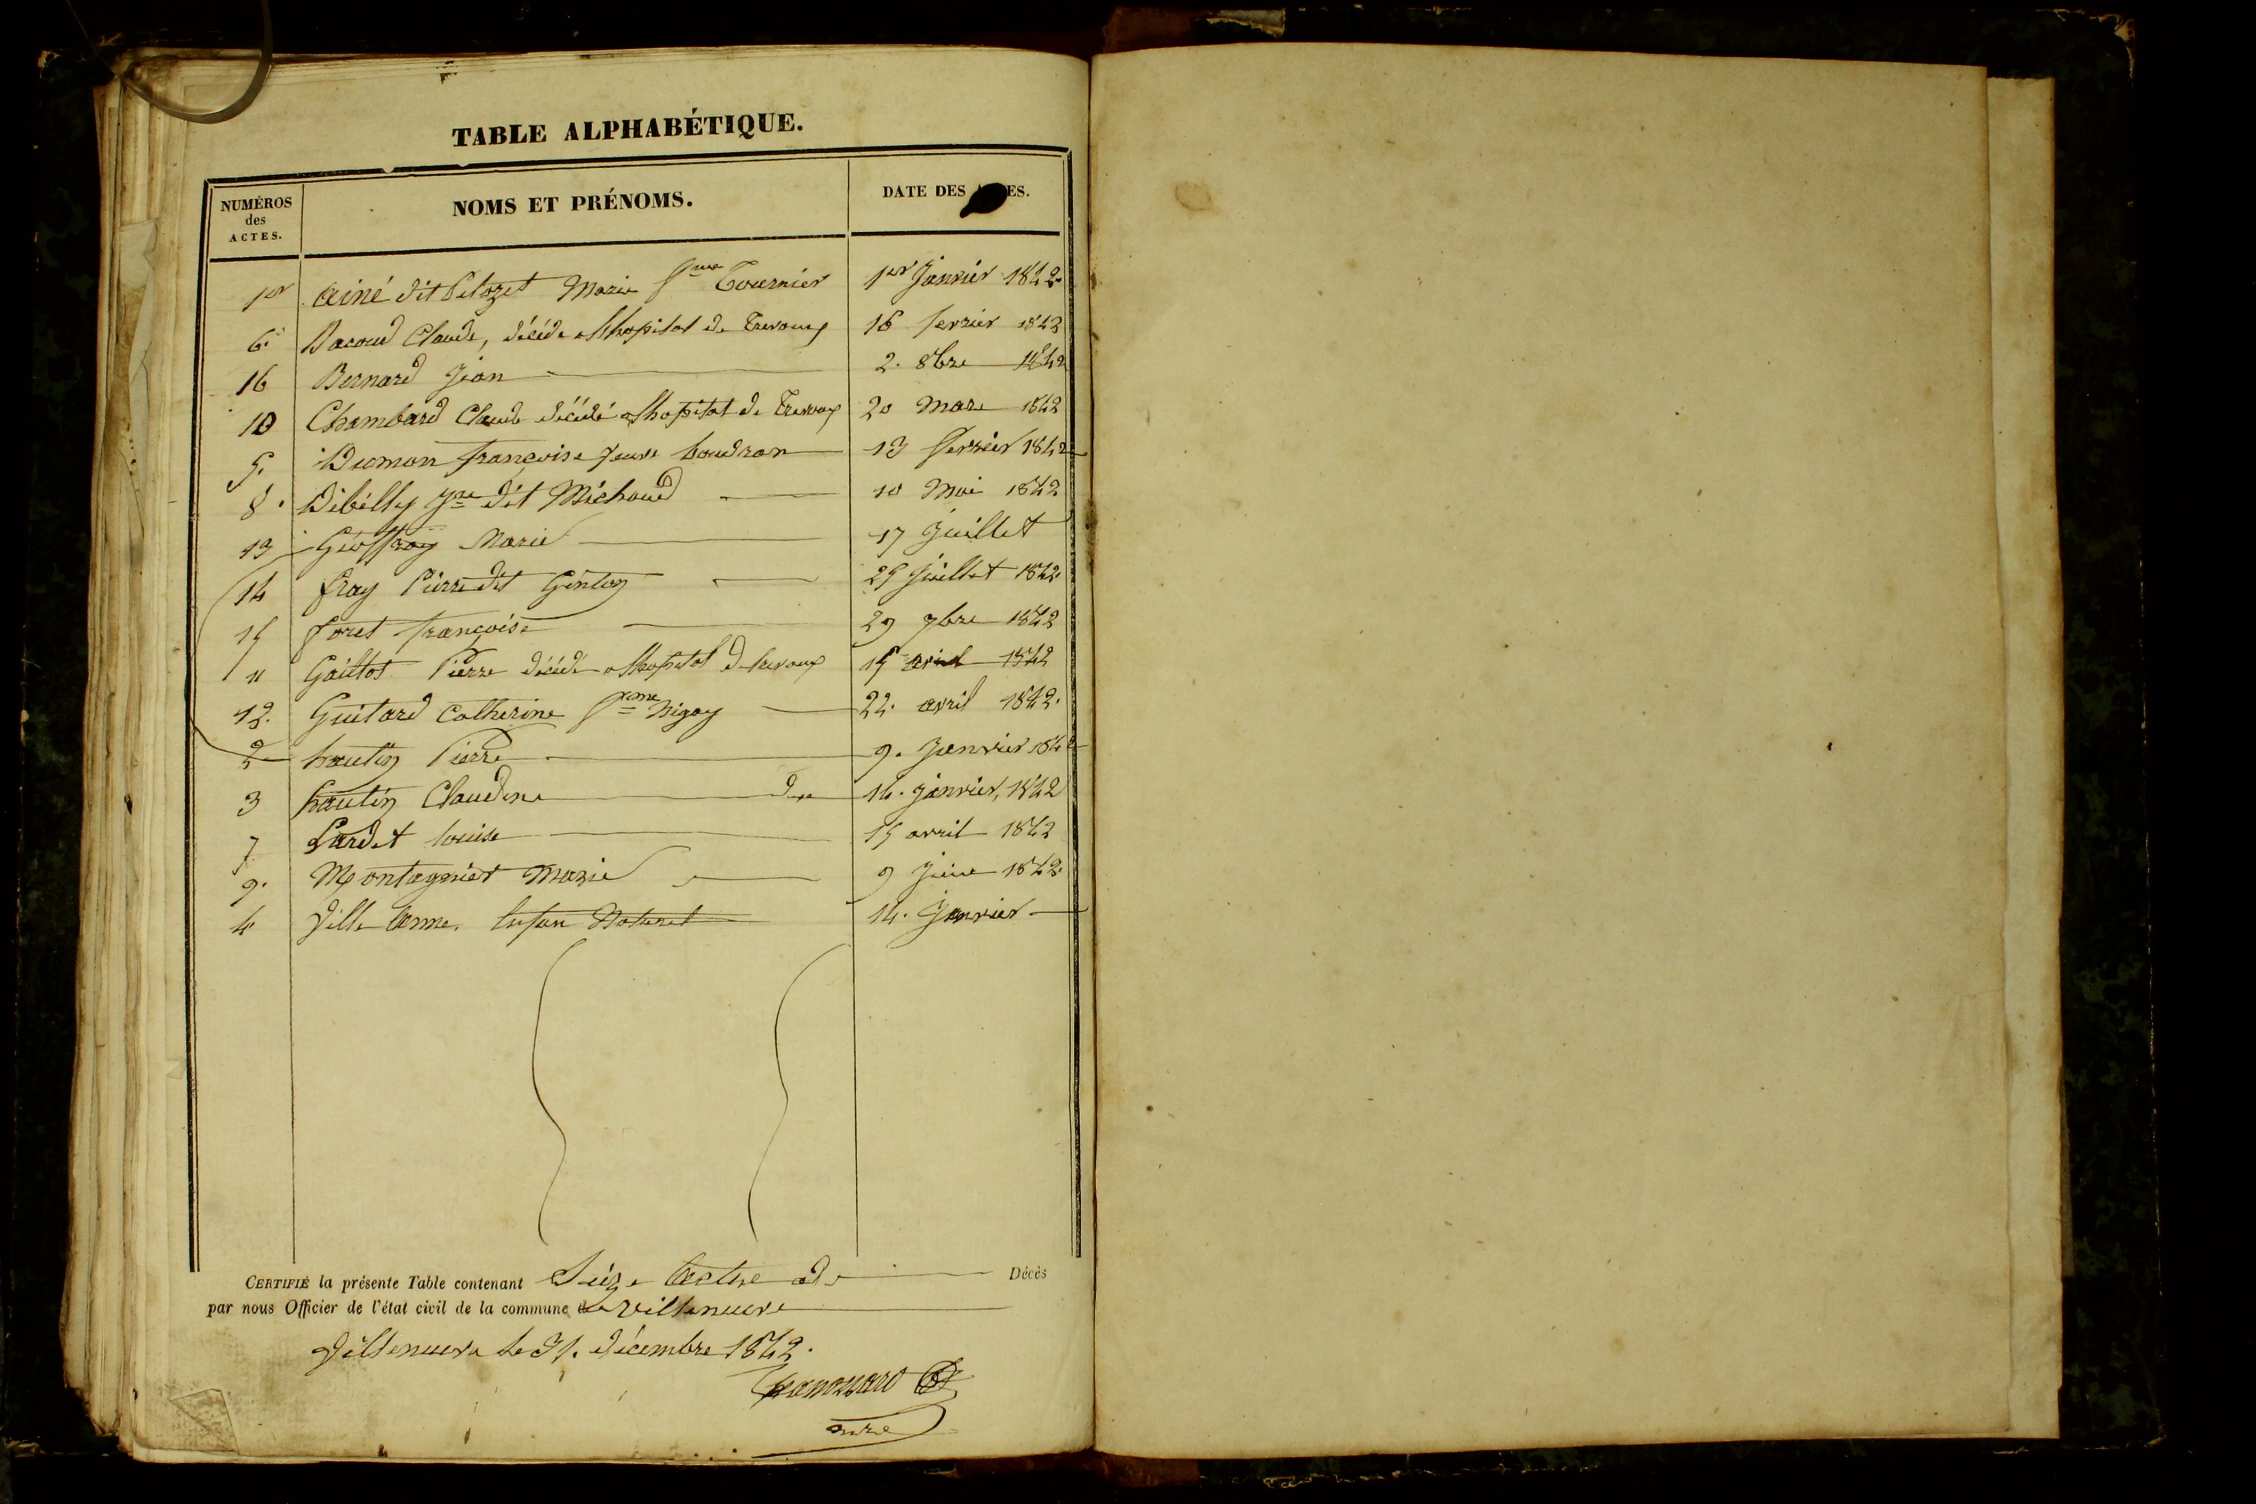 TABLE ALPHABÉTIQUE.
NUMÉROS des ACTES.
NOMS ET PRÉNOMS.
DATE DES ES.
1er ainé dit Marie Tournier 1er Janvier 1842.
6. Bacoud Claude, décédé a lhopital de Trevoux 16 fevrier 1842
16 Bernard Jean 2. 8bre 1842
10 Chambard Claude décédé a lhopital de Trevoux 20 Mars 1842
5. Dumon françoise veuve 13 fevrier 1842
8. Débilly dit Michoud 10 Mai 1842
13 Geoffray Marie 17 Juillet
14 fray Pierre dit Genton 25 Juillet 1842.
15 foret françoise 29 1842
11 Pierre décédé a lhopital de trevoux 15 avril 1842
12. Guitard Catherine fme Nigay 22. avril 1842.
2 Pierre 9. Janvier 1842
3 Claudine 14. janvier, 1842
7 Lardet louise 15 avril 1842
9. Montagnier Marie 9 Juin 1842.
4 Ville anne. Enfan Naturel 14. Janvier
CERTIFIÉ la présente Table contenant Seize acthe de Décès
par nous Officier de l'état civil de la commune de villeneuve
Villeneuve le 31. décembre 1842.